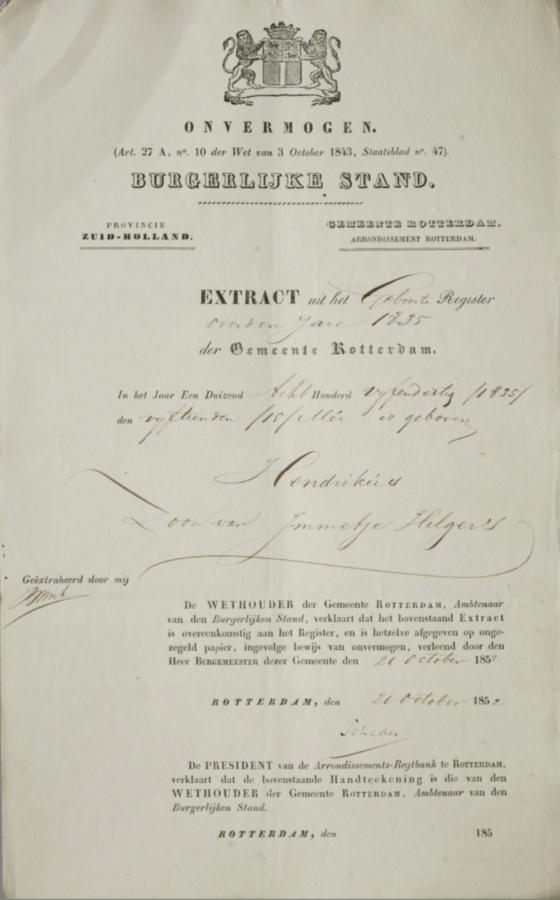 ONVERMOGEN.
(Art. 27 A, nº. 10 der Wet van 3 October 1843, Staatsblad nº. 47).
BURGERLIJKE STAND.
PROVINCIE
ZUID-HOLLAND.
GEMEENTE ROTTERDAM.
ARRONDISSEMENT ROTTERDAM.
EXTRACT uit het Geboorte Register
over den Jare 1835
der Gemeente Rotterdam.
In het Jaar Een Duizend Acht Honderd vijfendertig /1835/
den vijftienden /15/ Mei is geboren
Hendrikus
Zoon van Immetje Hilgers
Geëxtraheerd door mij
De WETHOUDER der Gemeente ROTTERDAM, Ambtenaar
van den Burgerlijken Stand, verklaart dat het bovenstaand Extract
is overeenkomstig aan het Register, en is hetzelve afgegeven op onge-
zegeld papier, ingevolge bewijs van onvermogen, verleend door den
Heer BURGEMEESTER dezer Gemeente den 21 October 1852
ROTTERDAM, den 21 October 1852
De PRESIDENT van de Arrondissements-Regtbank te ROTTERDAM,
verklaart dat de bovenstaande Handteekening is die van den
WETHOUDER der Gemeente ROTTERDAM, Ambtenaar van den
Burgerlijken Stand.
ROTTERDAM, den 185